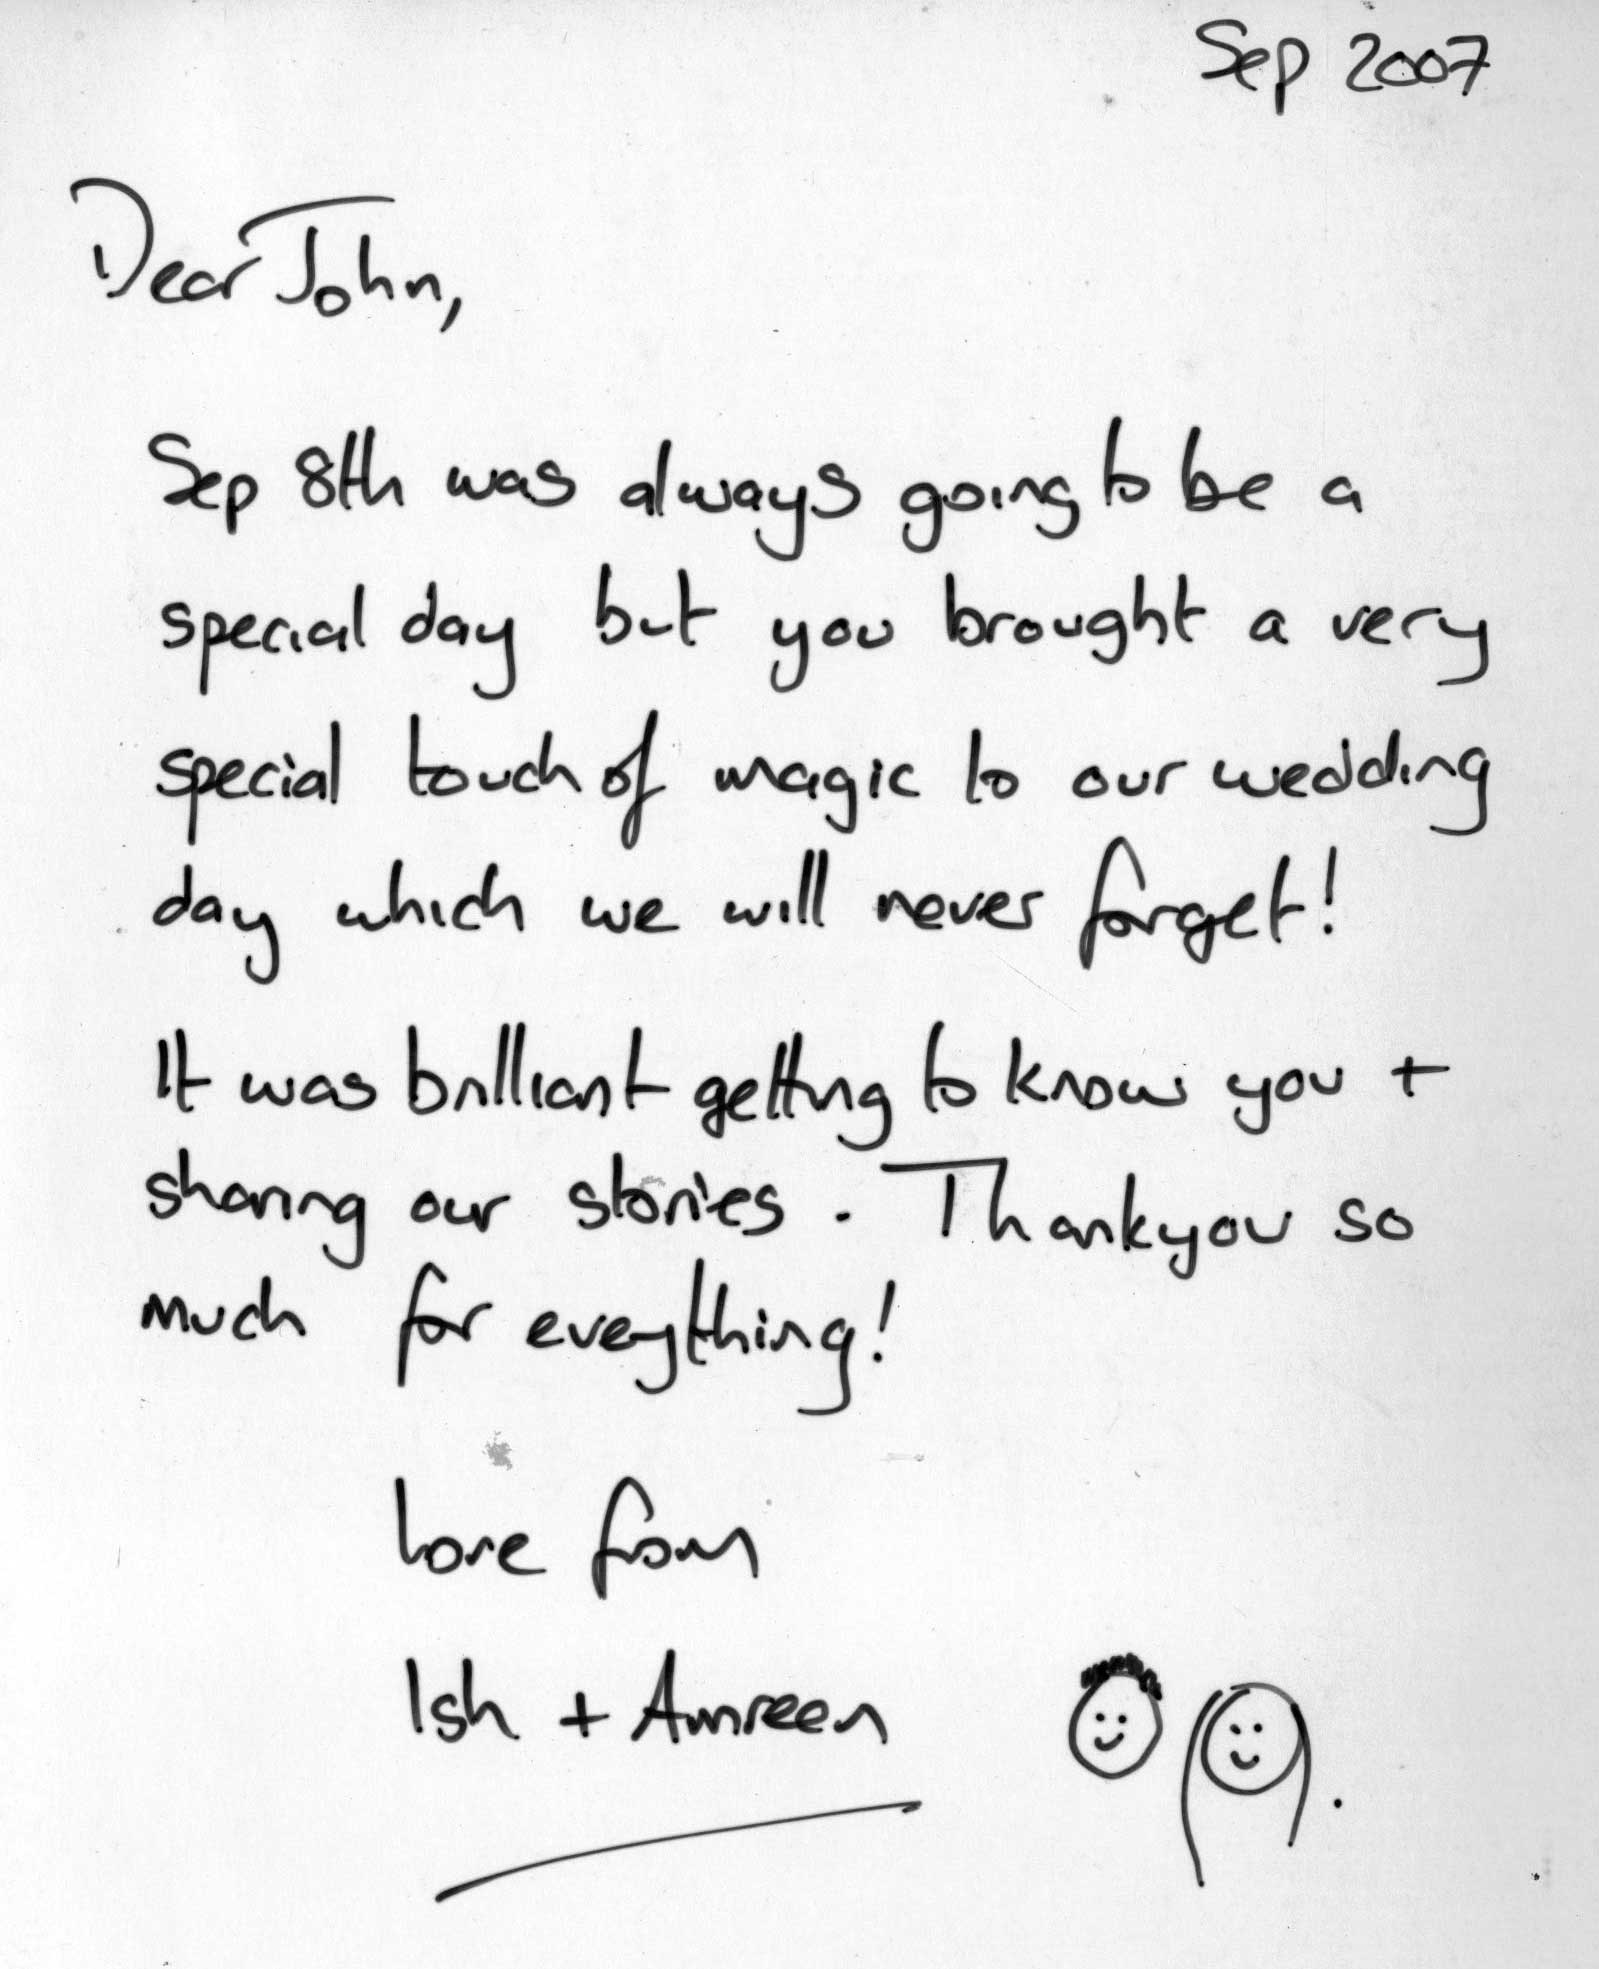 Sep 2007
Dear John,
Sep 8th was always going to be a
special day but you brought a very
special touch of magic to our wedding
day which we will never forget!
It was brilliant getting to know you +
sharing our stories. Thankyou so
much for eveything!
Love from
Ish + Amreen